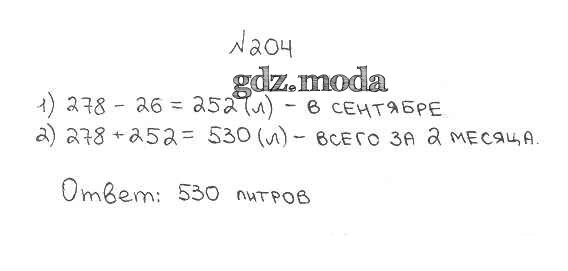 №204
gdz.moda
1) 278 - 26 = 252 (л) - в сентябре
2) 278 + 252 = 530 (л) - всего за 2 месяца.
Ответ: 530 литров